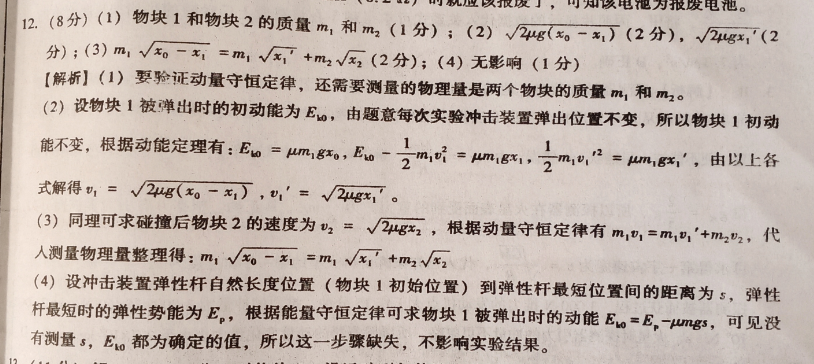 的就应该报废了，可知该电池为报废电池。
12.（8分）（1）物块1和物块2的质量 m₁ 和 m₂（1分）；（2）√(2μg(x₀ − x₁))（2分），√(2μgx₁′)（2
分）；（3）m₁√(x₀ − x₁) = m₁√(x₁′) + m₂√(x₂)（2分）；（4）无影响（1分）
【解析】（1）要验证动量守恒定律，还需要测量的物理量是两个物块的质量 m₁ 和 m₂。
（2）设物块1被弹出时的初动能为 Eₖ₀，由题意每次实验冲击装置弹出位置不变，所以物块1初动
能不变，根据动能定理有：Eₖ₀ = μm₁gx₀，Eₖ₀ − ½m₁v₁² = μm₁gx₁，½m₁v₁′² = μm₁gx₁′，由以上各
式解得 v₁ = √(2μg(x₀ − x₁))，v₁′ = √(2μgx₁′)。
（3）同理可求碰撞后物块2的速度为 v₂ = √(2μgx₂)，根据动量守恒定律有 m₁v₁ = m₁v₁′ + m₂v₂，代
入测量物理量整理得：m₁√(x₀ − x₁) = m₁√(x₁′) + m₂√(x₂)
（4）设冲击装置弹性杆自然长度位置（物块1初始位置）到弹性杆最短位置间的距离为 s，弹性
杆最短时的弹性势能为 Eₚ，根据能量守恒定律可求物块1被弹出时的动能 Eₖ₀ = Eₚ − μmgs，可见没
有测量 s，Eₖ₀ 都为确定的值，所以这一步骤缺失，不影响实验结果。